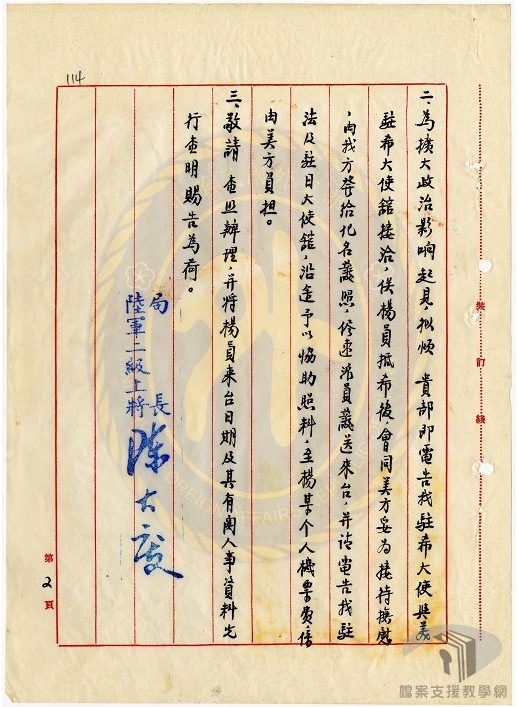 114
二、為擴大政治影响起見，拟煩　貴部即電告我駐希大使與美
駐希大使舘接洽，俟楊員抵希後，會同美方妥為接待撫慰
，由我方發給化名護照，修速派員護送來台，并請電告我駐
法及駐日大使舘，沿途予以協助照料，至楊某个人機票費，信
由美方負担。
三、敬請　查照辦理，并將楊員來台日期及其有関人事資料先
行查明賜告為荷。
局長
陸軍二級上將
陳大慶
第2頁
裝訂線
檔案支援教學網